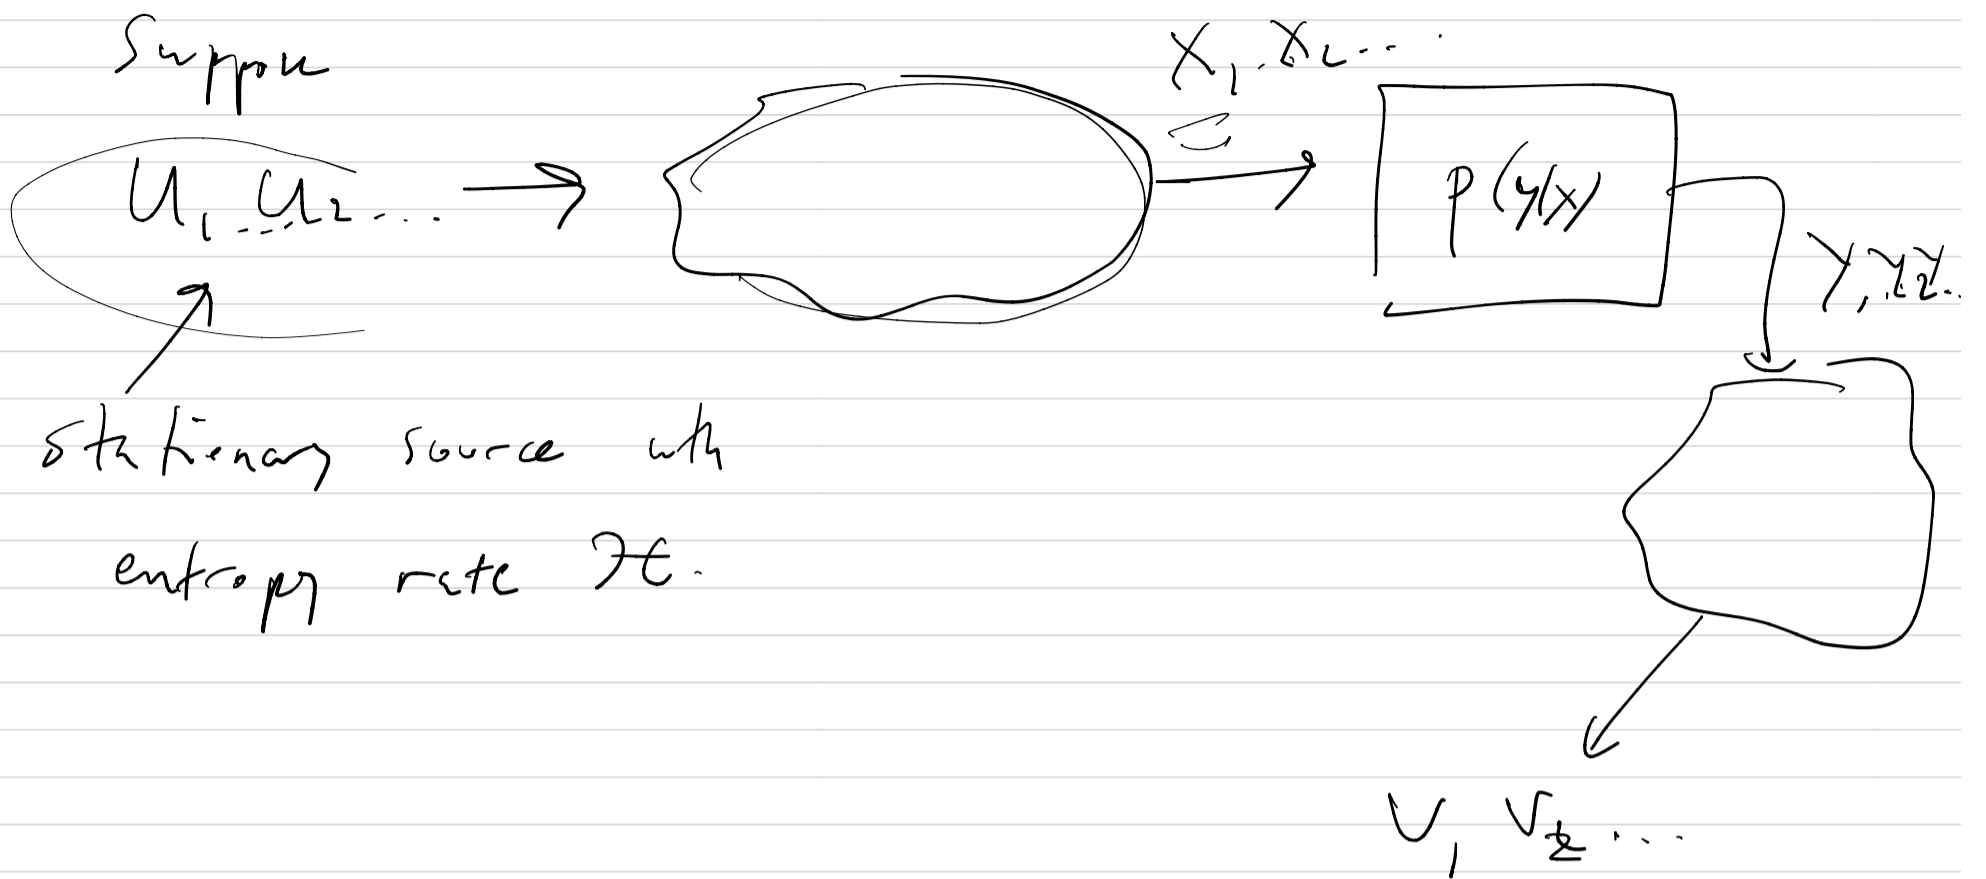 Suppose
X₁, X₂ ...
U₁, U₂ ...
P(y|x)
Y₁, Y₂ ...
stationary source with
entropy rate ℋ.
V₁ V₂ ...